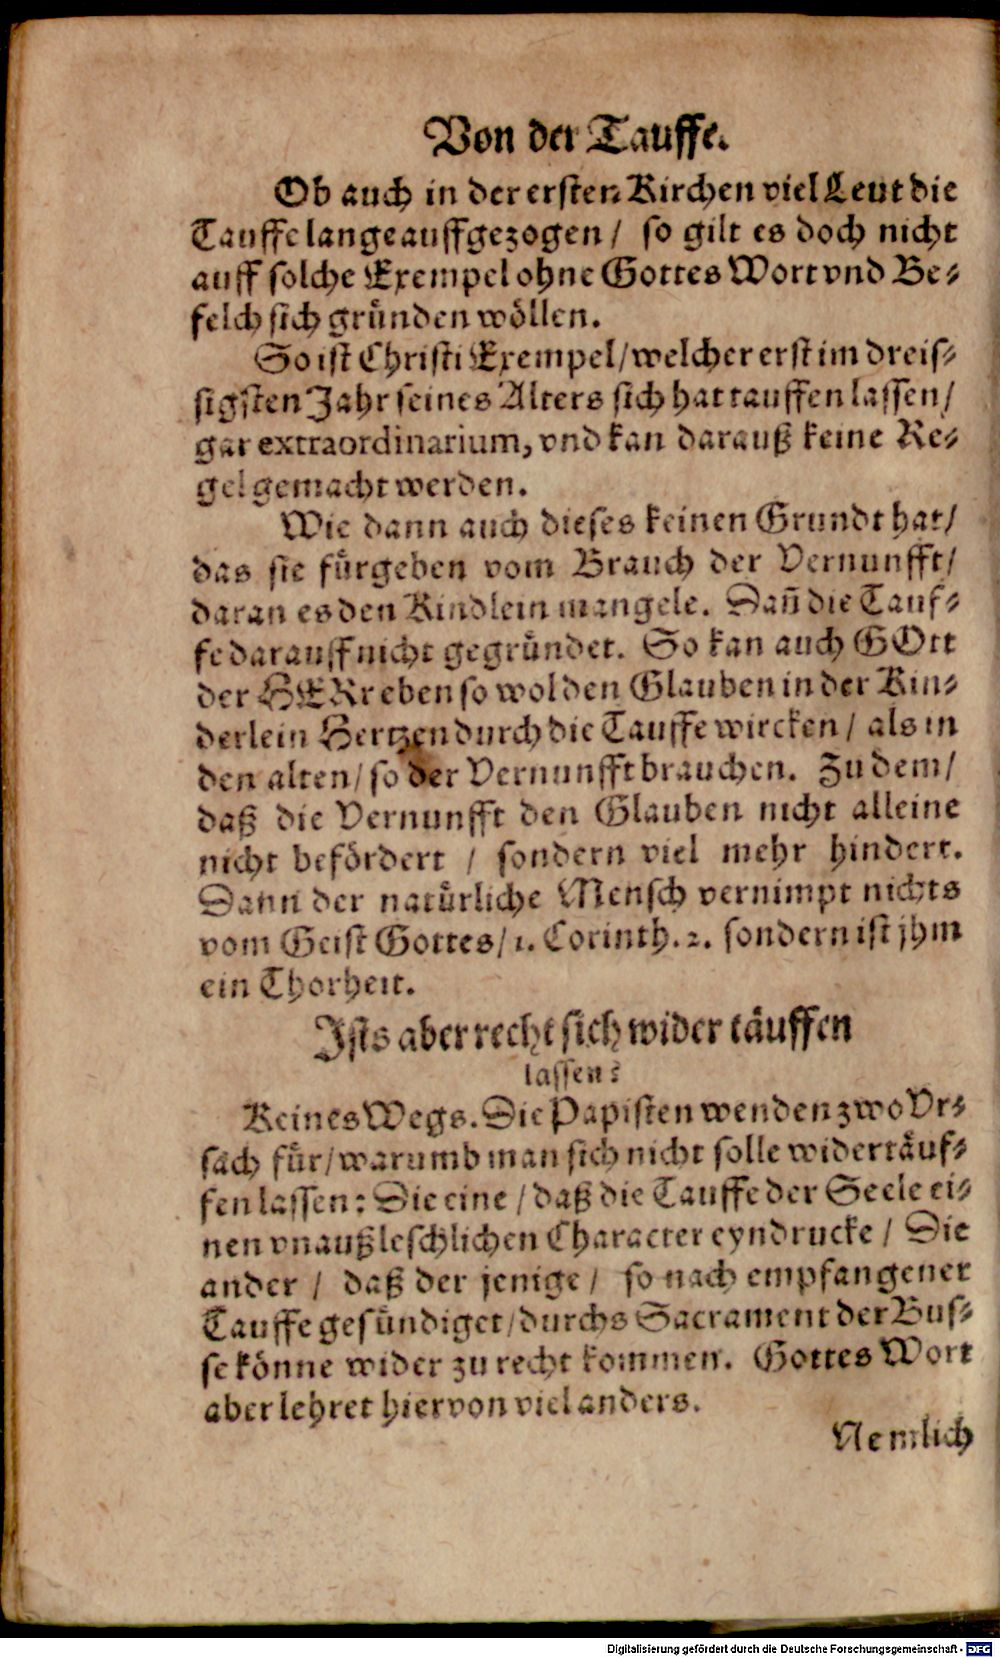 Von der Tauffe.
Ob auch in der ersten Kirchen viel Leut die
Tauffe lange auffgezogen / so gilt es doch nicht
auff solche Exempel ohne Gottes Wort vnd Be-
felch sich gründen wöllen.
So ist Christi Exempel / welcher erst im dreis-
sigsten Jahr seines Alters sich hat tauffen lassen /
gar extraordinarium, vnd kan darauß keine Re-
gel gemacht werden.
Wie dann auch dieses keinen Grundt hat /
das sie fürgeben vom Brauch der Vernunfft /
daran es den Kindlein mangele. Dañ die Tauf-
fe darauff nicht gegründet. So kan auch GOtt
der HERr eben so wol den Glauben in der Kin-
derlein Hertzen durch die Tauffe wircken / als in
den alten / so der Vernunfft brauchen. Zu dem /
daß die Vernunfft den Glauben nicht alleine
nicht befördert / sondern viel mehr hindert.
Dann der natürliche Mensch vernimpt nichts
vom Geist Gottes / 1. Corinth. 2. sondern ist jhm
ein Thorheit.
Ists aber recht sich wider täuffen
lassen?
Keines Wegs. Die Papisten wenden zwo Vr-
sach für / warumb man sich nicht solle widertäuf-
fen lassen: Die eine / daß die Tauffe der Seele ei-
nen vnaußleschlichen Character eyndrucke / Die
ander / daß der jenige / so nach empfangener
Tauffe gesündiget / durchs Sacrament der Bus-
se könne wider zu recht kommen. Gottes Wort
aber lehret hiervon viel anders.
Nemlich
Digitalisierung gefördert durch die Deutsche Forschungsgemeinschaft - DFG